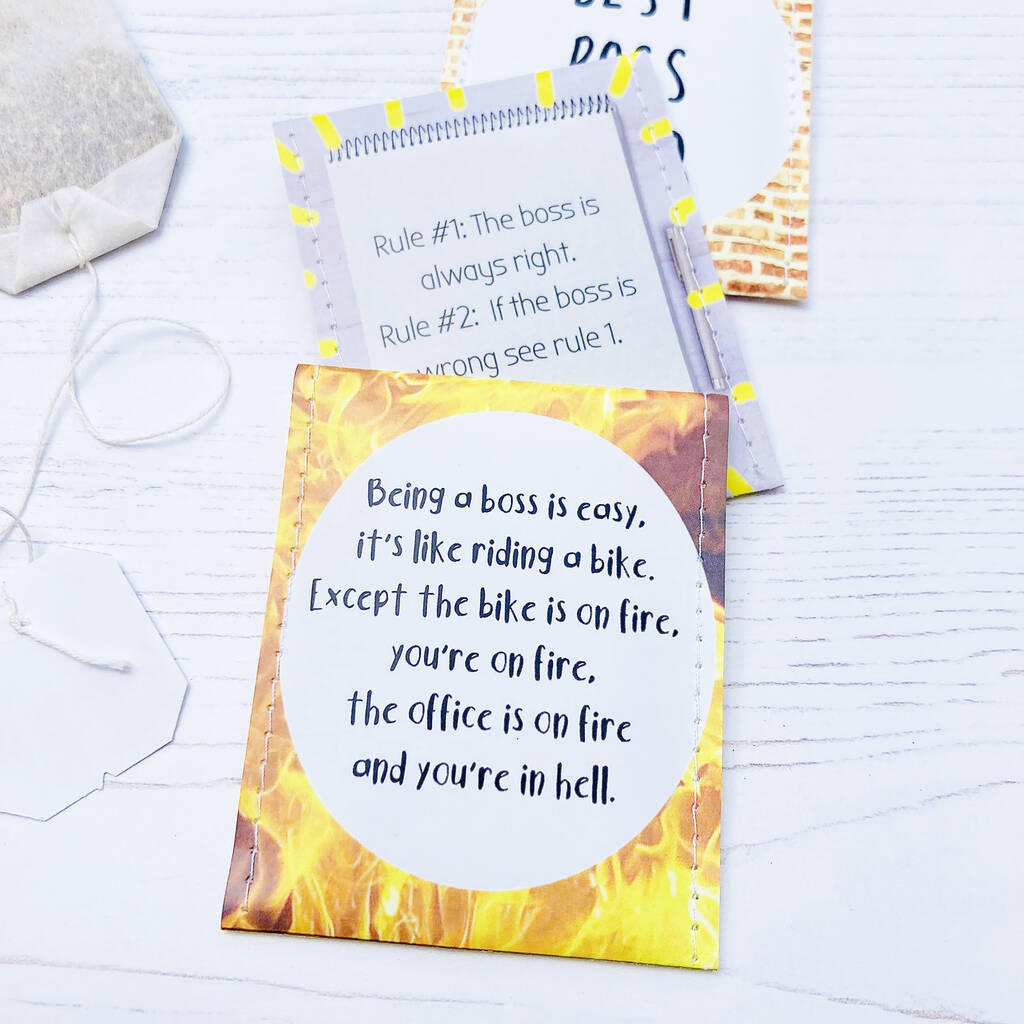 BEST
BOSS
Rule #1: The boss is
always right.
Rule #2: If the boss is
wrong see rule 1.
Being a boss is easy,
it's like riding a bike.
Except the bike is on fire,
you're on fire,
the office is on fire
and you're in hell.